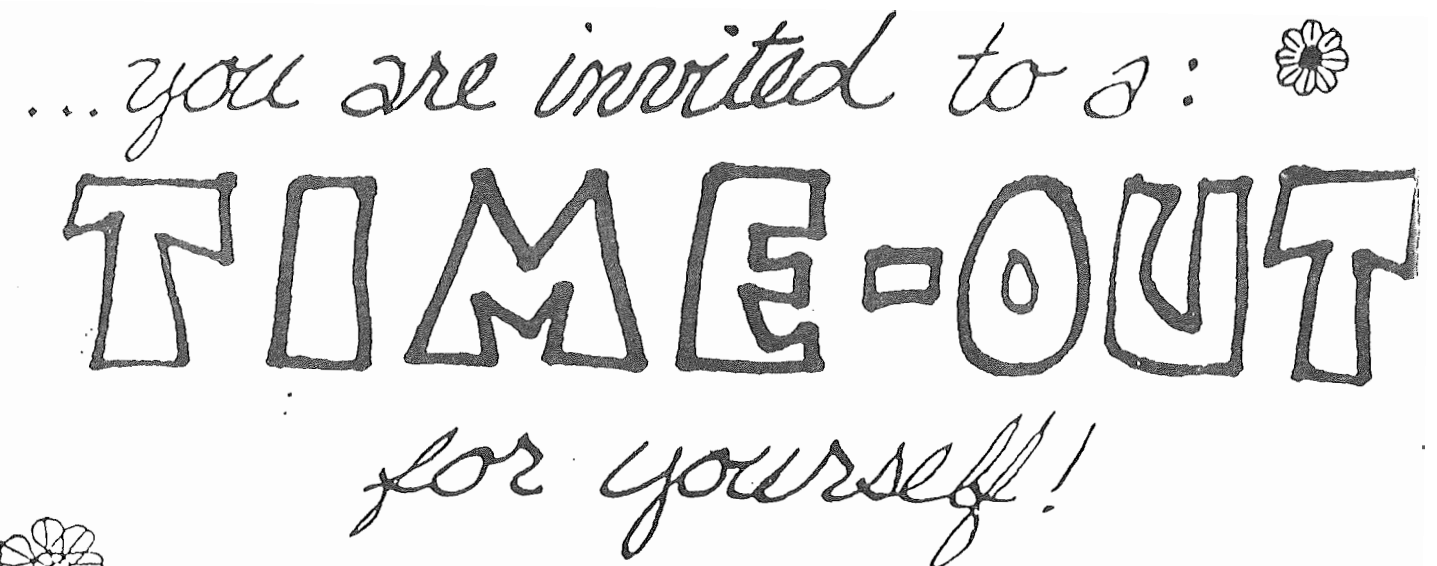 ...you are invited to a:
TIME-OUT
for yourself!